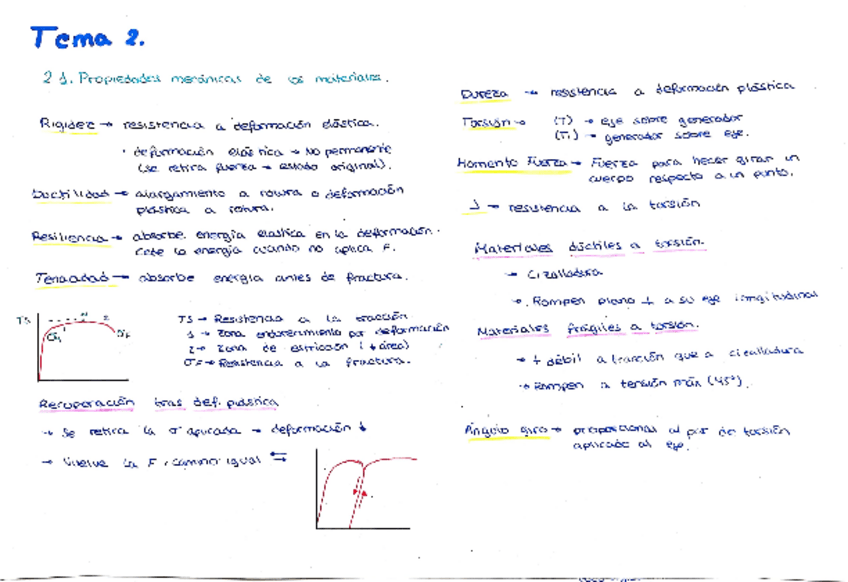 Tema 2.
2.1. Propiedades mecánicas de los materiales.
Rigidez → resistencia a deformación elástica.
· deformación elástica → No permanente
(se retira fuerza → estado original).
Ductilidad → alargamiento a rotura o deformación
plástica a rotura.
Resiliencia → absorbe energía elastica en la deformación.
Cede la energía cuando no aplica F.
Tenacidad → absorbe energía antes de fractura.
TS
1
2
σy
σF
TS → Resistencia a la tracción
1 → zona endurecimiento por deformación
2 → zona de estricción (↓ área)
σF → Resistencia a la fractura.
Recuperación tras def. plástica
→ Se retira la σ aplicada → deformación ↓
→ Vuelve la F, camino igual ⇆
Dureza → resistencia a deformación plástica
Torsión → (T) → eje sobre generador
(T₁) → generador sobre eje.
Momento Fuerza → Fuerza para hacer girar un
cuerpo respecto a un punto.
J → resistencia a la torsión
Materiales dúctiles a torsión.
→ Cizalladura
→ Rompen plano ⊥ a su eje longitudinal
Materiales frágiles a torsión.
→ + débil a tracción que a cizalladura
→ Rompen a tensión máx (45°).
Ángulo giro → proporcional al par de torsión
aplicado al eje.